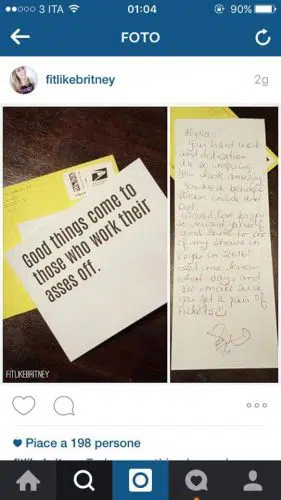 3 ITA
01:04
90%
FOTO
fitlikebritney
2g
Good things come to
those who work their
asses off.
FITLIKEBRITNEY
Your hard work
and dedication
is so inspiring
you look amazing
You're a beautiful
Person inside and
out.
Would love for you
to reward yourself
and come to one
of my shows in
Vegas in 2016!
Let me know
what day, and
I'll make sure
you get a pair of
tickets
Piace a 198 persone